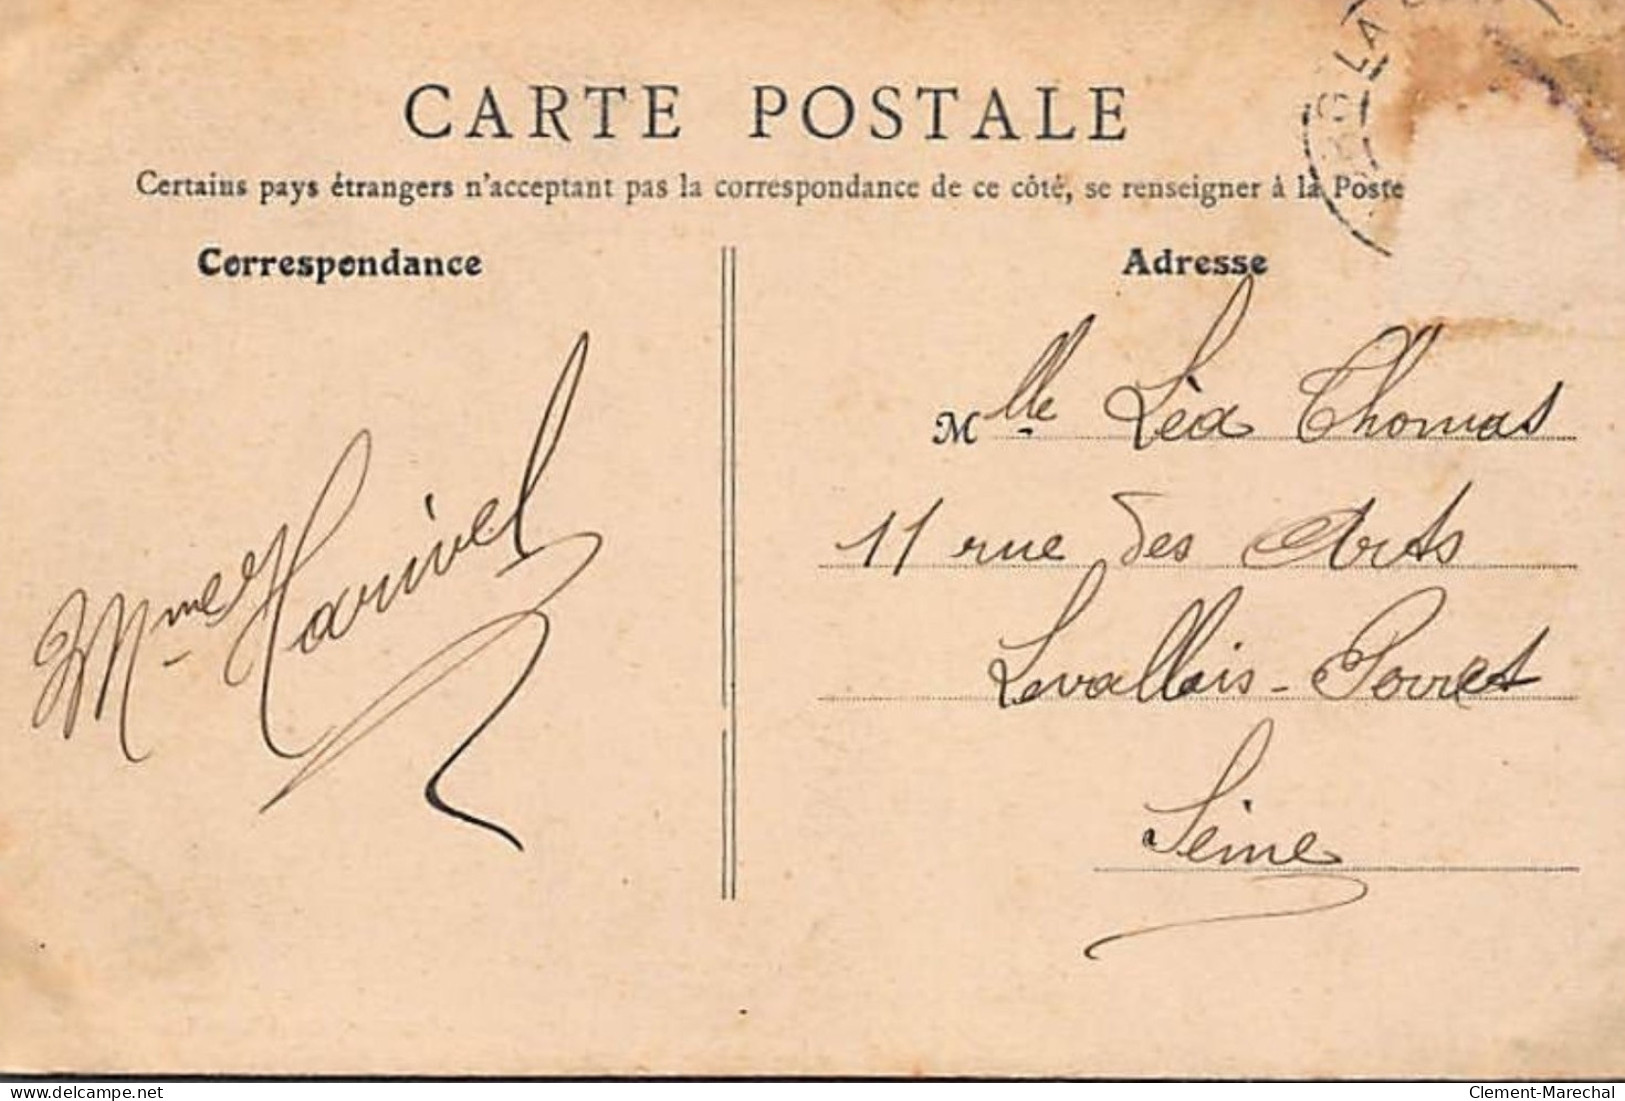 CARTE POSTALE
Certains pays étrangers n'acceptant pas la correspondance de ce côté, se renseigner à la Poste
Correspondance
Mme Harivel
Adresse
Mlle Lèa Thomas
11 rue des Arts
Levallois-Perret
Seine
LA
delcampe.net
Clement-Marechal